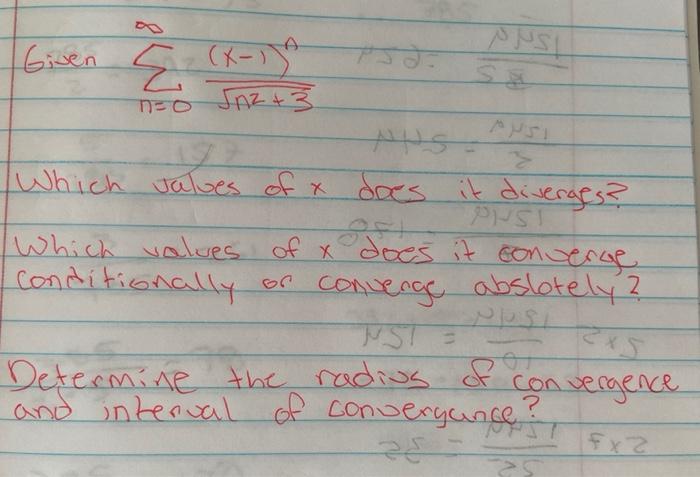 Given \sum_{n=0}^{\infty} \frac{(x-1)^n}{\sqrt{n2+3}}
Which values of x does it diverges?
Which values of x does it converge
conditionally or converge abslotely?
Determine the radius of convergence
and interval of convergance?